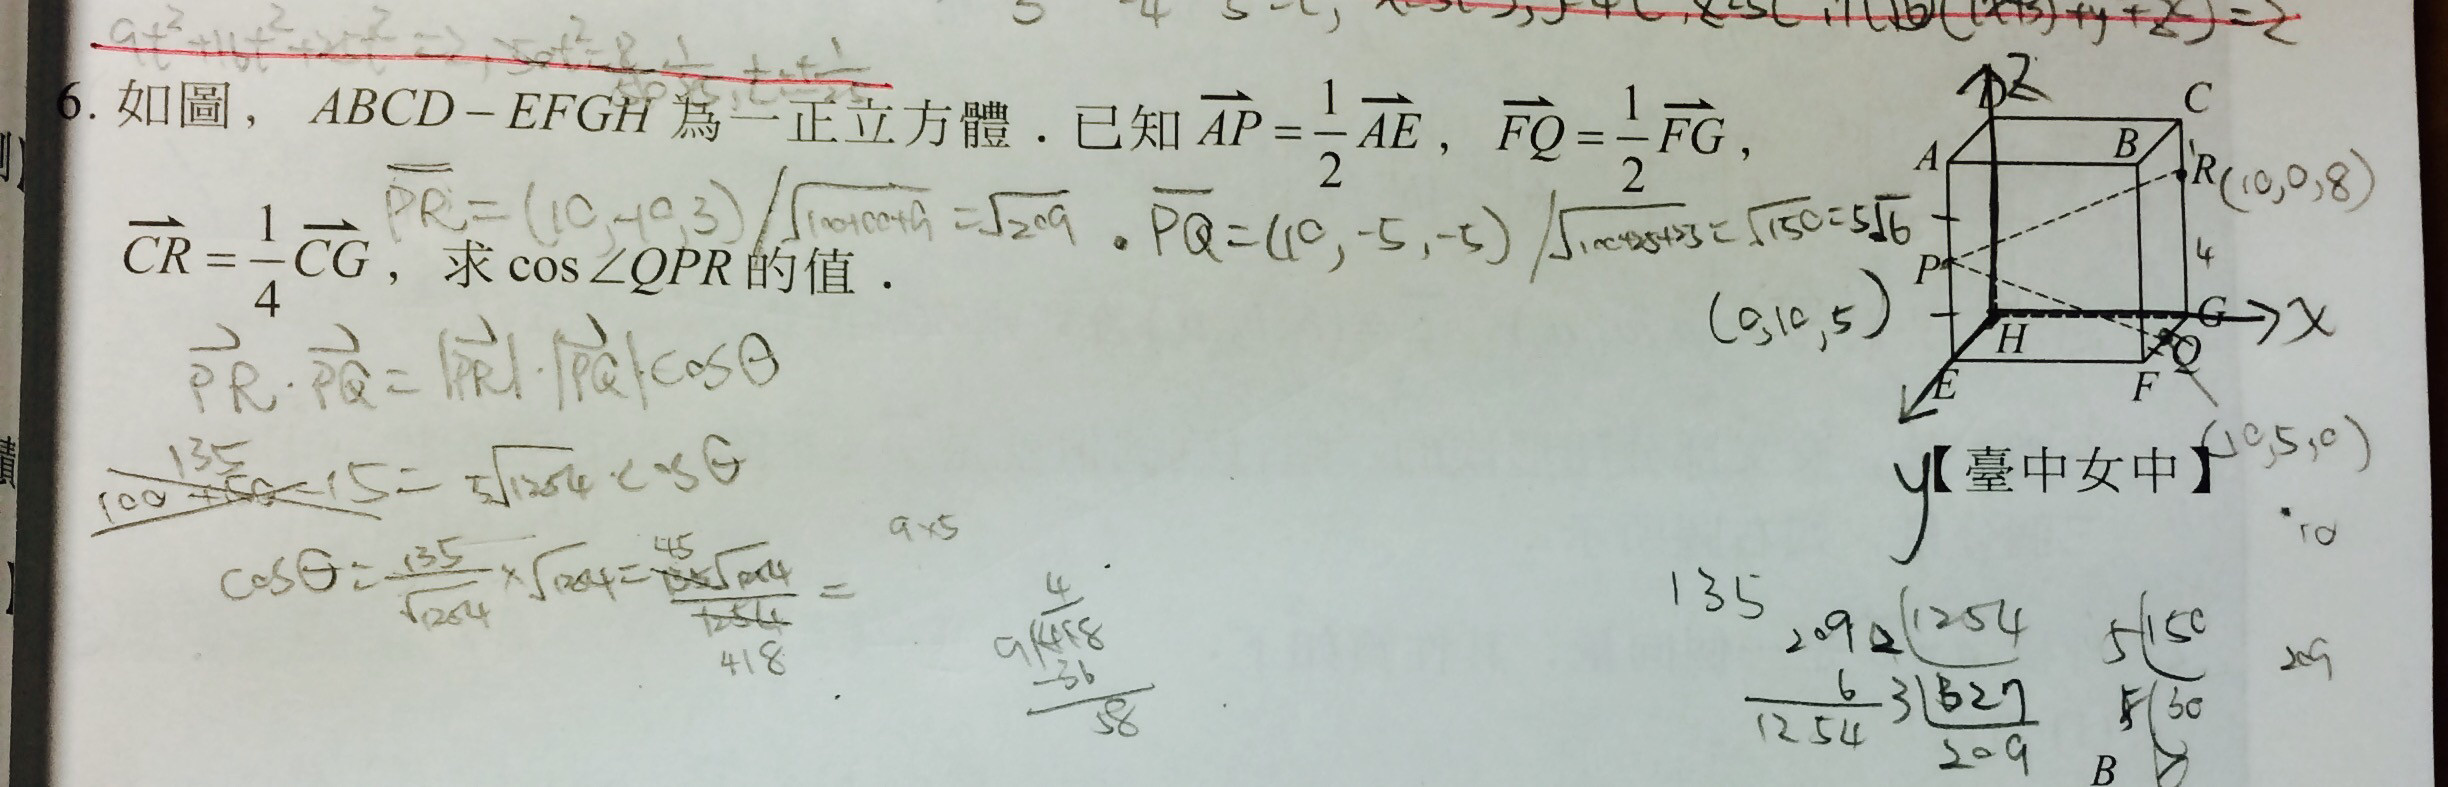 6. 如圖， ABCD－EFGH 為一正立方體．已知 \overrightarrow{AP}=\frac{1}{2}\overrightarrow{AE}， \overrightarrow{FQ}=\frac{1}{2}\overrightarrow{FG}，
\overline{PR}=(10,-10,3) / \sqrt{100+100+9}=\sqrt{209} . \overline{PQ}=(10,-5,-5) / \sqrt{100+25+25}=\sqrt{150}=5\sqrt{6}
\overrightarrow{CR}=\frac{1}{4}\overrightarrow{CG}，求 cos∠QPR 的值．
\overrightarrow{PR}·\overrightarrow{PQ}=|\overrightarrow{PR}|·|\overrightarrow{PQ}|·cosθ
135
100+50-15=5\sqrt{1254}·cosθ
cosθ=\frac{135}{\sqrt{1254}}×\sqrt{1254}=
45
418
9×5
4
-36
58
Z
C
A
B
R(10,0,8)
P
4
(0,10,5)
H
G
X
Q
E
F
(10,5,0)
y
【臺中女中】
10
135
209
6
1254
2 1254
3 627
209
5 150
30
209
B